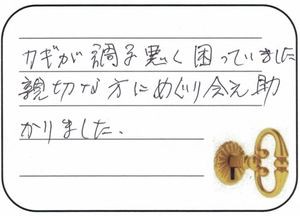 カギが調子悪く困っていました
親切な方にめぐり会え助
かりました.